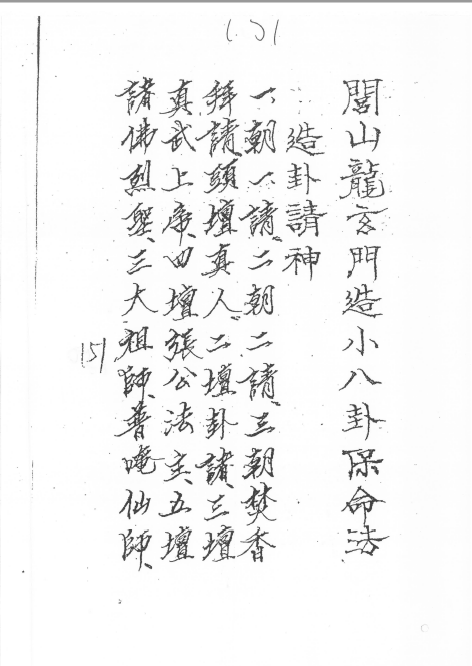 151
閭山龍玄門造小八卦保命法
造卦請神
一朝一請、二朝二請、三朝焚香
拜請頭壇真人、二壇卦請、三壇
真武上帝、四壇張公法主、五壇
諸佛烈聖、三大祖師、普唵仙師、
151